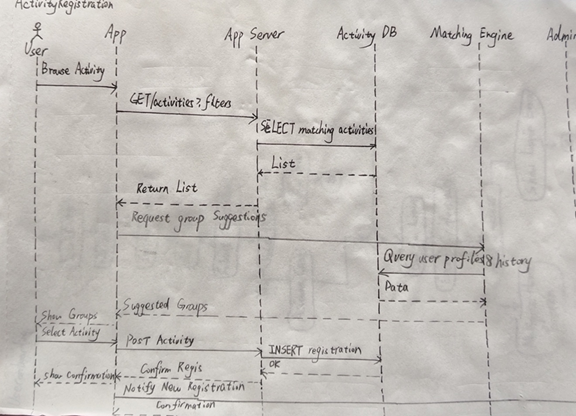 ActivityRegistration
User
App
App Server
Activity DB
Matching Engine
Admin
Browse Activity
GET/activities?filters
SELECT matching activities
List
Return List
Request group Suggestions
Query user profiles & history
Data
Suggested Groups
Show Groups
Select Activity
POST Activity
INSERT registration
OK
Confirm Regis
show Confirmation
Notify New Registration
Confirmation